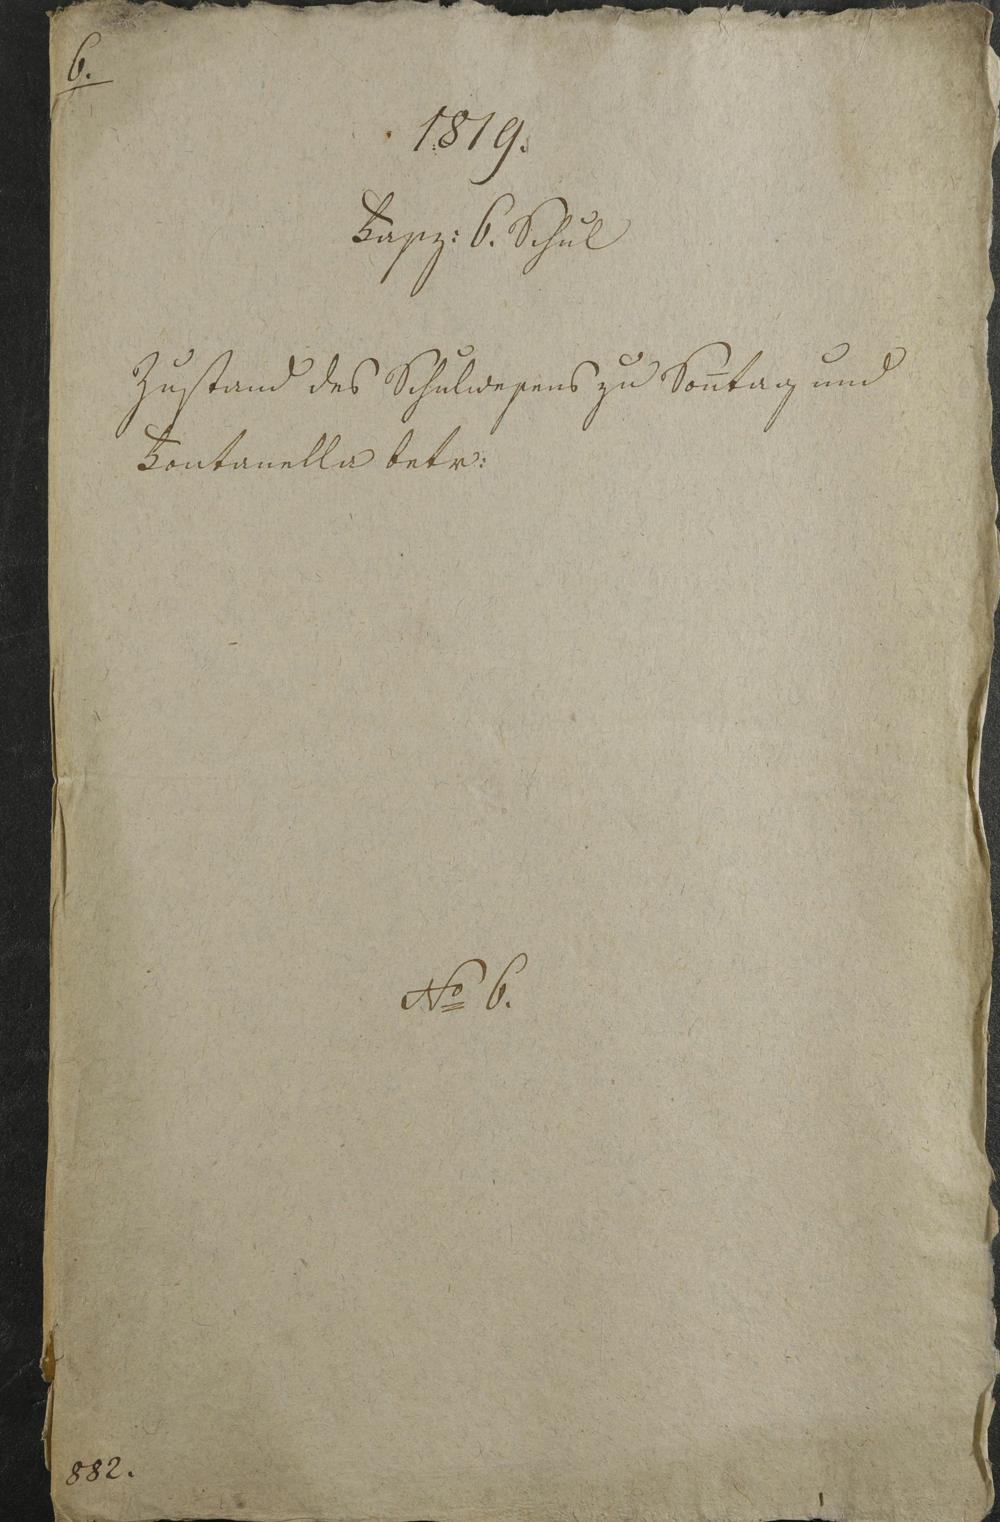 6.
1819.
Fasz: 6. Schul
Zustand des Schulwesens zu Son̄tag und
Fontanella betr:
No 6.
882.